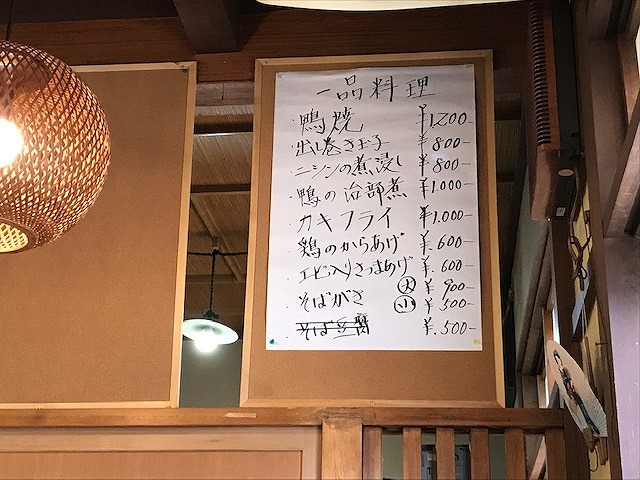 一品料理
・鴨焼 ¥1200-
・出し巻き玉子 ¥800-
・ニシンの煮浸し ¥800-
・鴨の治部煮 ¥1.000-
・カキフライ ¥1.000-
・鶏のからあげ ¥.600-
・エビ入りさつまあげ ¥.600-
・そばがき 大 ¥900-
小 ¥500-
・そば豆腐 ¥.500-